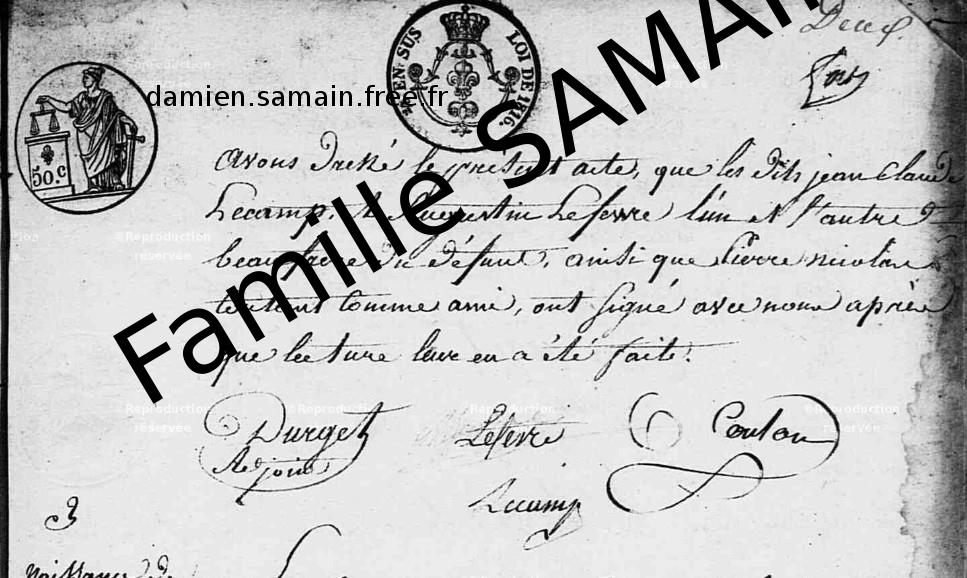 Deux
EN SUS LOI DE 1816.
50.c
damien.samain.free.fr
Famille SAMAIN
©Reproduction réservée
avons dressé le present acte, que les dits jean Claude
Lecamp, et Augustin Lefevre l'un et l'autre
beaufrere du défunt, ainsi que Pierre nicolas
Coutant comme ami, ont signé avec nous après
que lecture leur en a été faite.
Durget
Adjoint
Lefevre
Coutan
Lecamp
3
naissance de